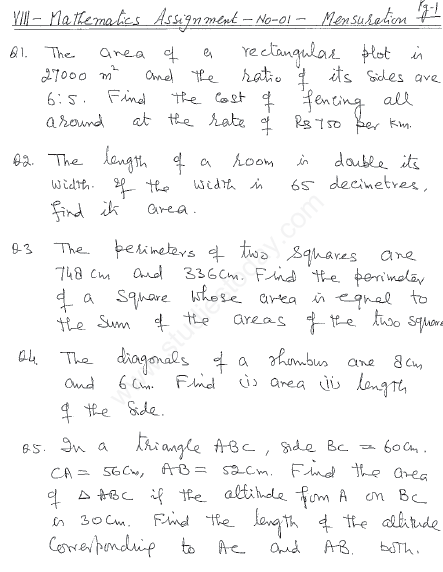 VIII - Mathematics Assignment - No-01 - Mensuration Pg-1
Q1. The area of a rectangular plot is
27000 m² and the ratio of its sides are
6:5. Find the cost of fencing all
around at the rate of Rs 750 per km.
Q2. The length of a room is double its
width. If the width is 65 decimetres,
find its area.
Q3 The perimeters of two squares are
748 cm and 336 cm. Find the perimeter
of a square whose area is equal to
the sum of the areas of the two square
Q4. The diagonals of a rhombus are 8 cm
and 6 cm. Find (i) area (ii) length
of the side.
Q5. In a triangle ABC, side BC = 60 cm.
CA = 56 cm, AB = 52 cm. Find the area
of Δ ABC if the altitude from A on BC
is 30 cm. Find the length of the altitude
corresponding to AC and AB. both.
www.studiestoday.com